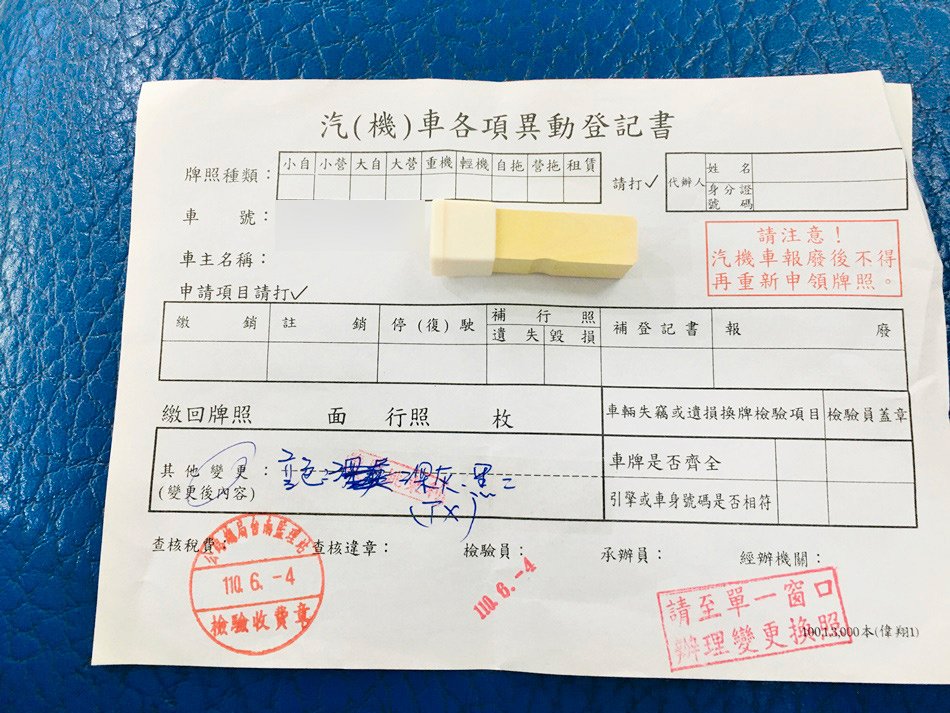 汽(機)車各項異動登記書
牌照種類：
小自 小營 大自 大營 重機 輕機 自拖 營拖 租賃
請打✓
代辦人
姓名
身分證
號碼
車號：
車主名稱：
請注意！
汽機車報廢後不得
再重新申領牌照。
申請項目請打✓
繳銷 註銷 停(復)駛 補行照 補登記書 報廢
遺失 毀損
繳回牌照 面 行照 枚
車輛失竊或遺損換牌檢驗項目 檢驗員蓋章
車牌是否齊全
引擎或車身號碼是否相符
其他變更：
(變更後內容)
灰.黑=
(TX)
查核稅費： 查核違章： 檢驗員： 承辦員： 經辦機關：
110.6.-4
檢驗收費章
110.6.-4
請至單一窗口
辦理變更換照
(偉翔1)